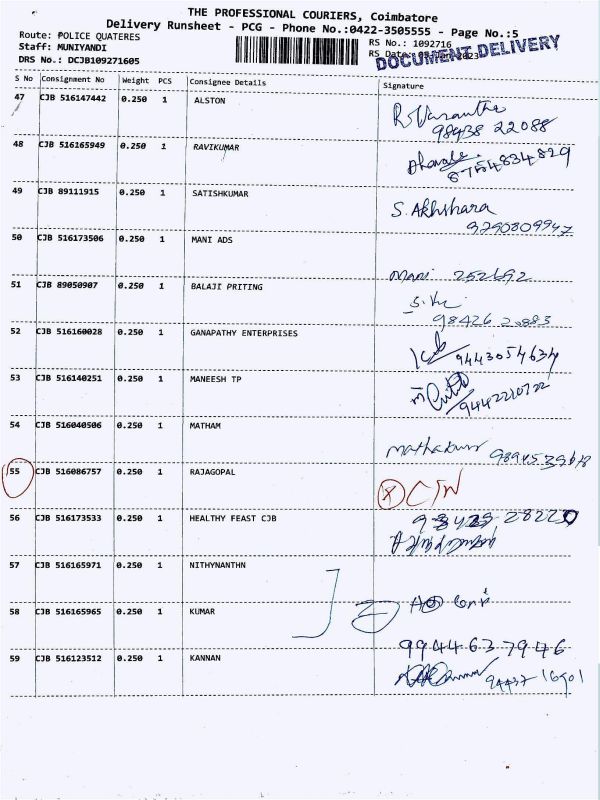 THE PROFESSIONAL COURIERS, Coimbatore
Delivery Runsheet - PCG - Phone No.:0422-3505555 - Page No.:5
Route: POLICE QUATERES
RS No.: 1092716
Staff: MUNIYANDI
RS Date: 2023
DOCUMENT DELIVERY
DRS No.: DCJB109271605
S No Consignment No Weight PCS Consignee Details Signature
47 CJB 516147442 0.250 1 ALSTON
98438 22088
48 CJB 516165949 0.250 1 RAVIKUMAR
8754834829
49 CJB 89111915 0.250 1 SATISHKUMAR S. Akhshara
9290809947
50 CJB 516173506 0.250 1 MANI ADS
Mani 252692
51 CJB 89050907 0.250 1 BALAJI PRITING
98426 2883
52 CJB 516160028 0.250 1 GANAPATHY ENTERPRISES
9443054634
53 CJB 516140251 0.250 1 MANEESH TP
9442210722
54 CJB 516040506 0.250 1 MATHAM
55 CJB 516086757 0.250 1 RAJAGOPAL
56 CJB 516173533 0.250 1 HEALTHY FEAST CJB
28220
57 CJB 516165971 0.250 1 NITHYNANTHN
58 CJB 516165965 0.250 1 KUMAR
9944637946
59 CJB 516123512 0.250 1 KANNAN
94437 16901